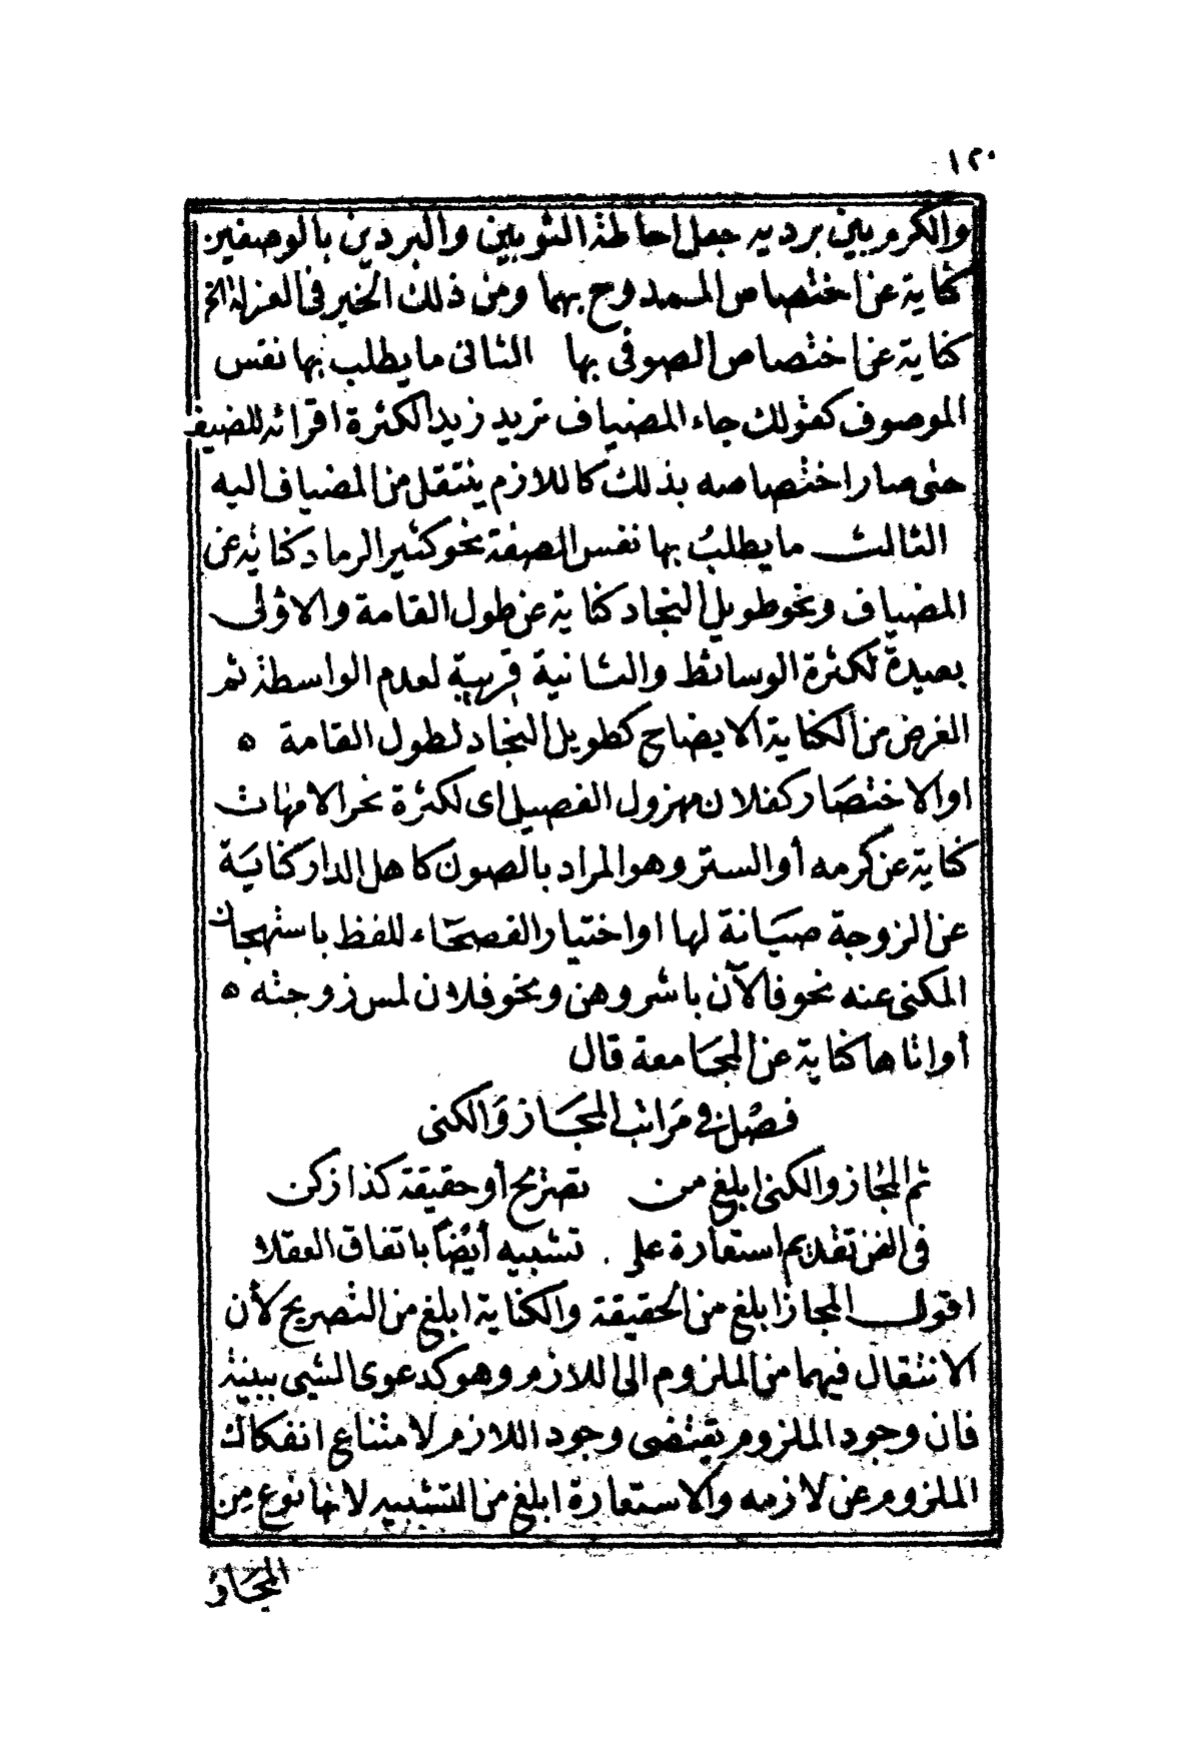 ١٢٠
والكرم بين برديه جعل احاطة الثوبين والبردين بالوصفين
كناية عن اختصاص الممدوح بهما ومن ذلك الخير فى العزلة الخ
كناية عن اختصاص الصوفى بها الثانى ما يطلب بها نفس
الموصوف كقولك جاء المضياف تريد زيدا لكثرة اقرائه للضيف
حتى صار اختصاصه بذلك كاللازم ينتقل من المضياف اليه
الثالث ما يطلبُ بها نفس الصفة نحو كثير الرماد كناية عن
المضياف ونحو طويل النجاد كناية عن طول القامة والاولى
بعيدة لكثرة الوسائط والثانية قريبة لعدم الواسطة ثم
الغرض من الكناية الايضاح كطويل النجاد لطول القامة ٥
او الاختصَار كفلان مهزول الفصيل اى لكثرة نحر الامهات
كناية عن كرمه أو الستر وهو المراد بالصون كاهل الدار كنايَة
عن الزوجة صيَانة لها او اختيار الفصحَاء للفظ باستهجان
المكنى عنه نحو فالآن باشروهن ونحو فلان لمس زوجته ٥
أو اتاها كناية عن المجَامعة قال
فصْل فى مَراتب المجَاز وَالكنى
ثم المجاز والكنى ابلغ من تصريح أو حقيقة كذا زكن
فى الفن تقديم استعارة على تشبيه أيضًا باتفاق العقلا
اقول المجاز ابلغ من الحقيقة والكناية ابلغ من التصريح لأن
الانتقال فيهما من الملزوم الى اللازم وهو كدعوى الشيى ببينة
فان وجود الملزوم يقتضى وجود اللازم لامتناع انفكاك
الملزوم عن لازمه والاستعارة ابلغ من التشبيه لانها نوع من
المجَاز